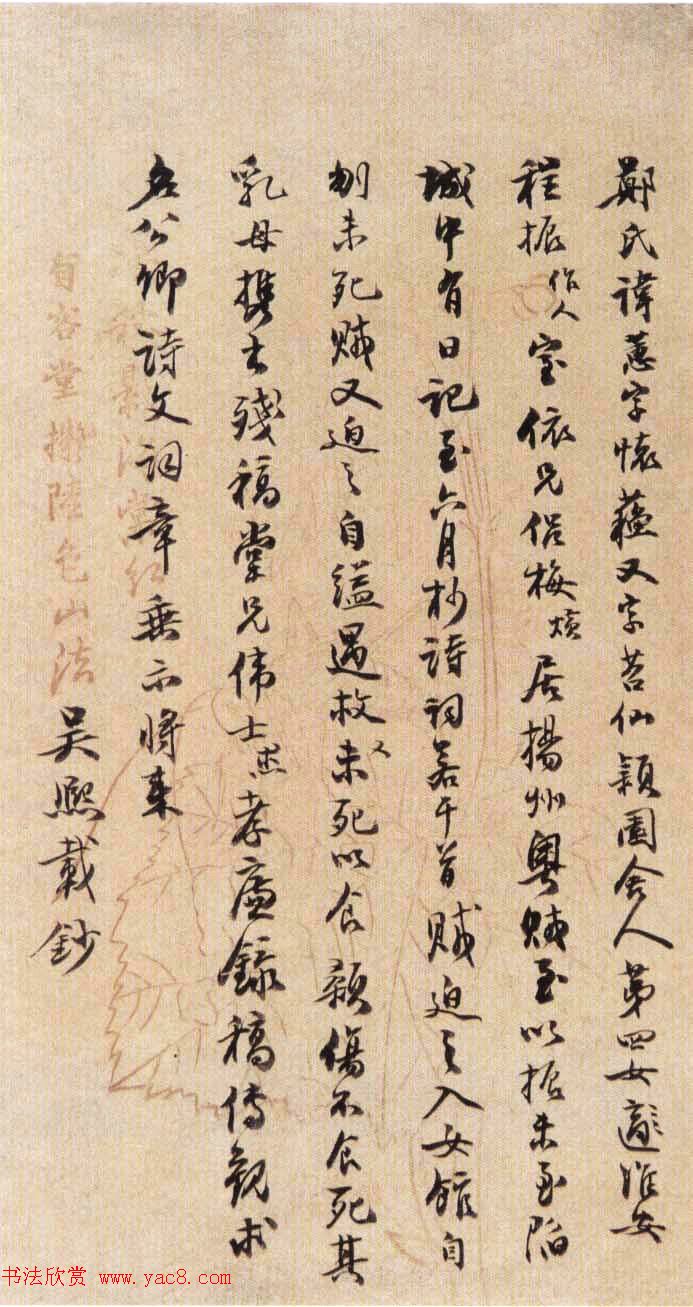 鄭氏諱蕙字懷蘊又字苕仙穎園舍人第四女適淮安
程振作人室依兄侶梅煐居揚州粵賊至以振未至陷
城中有日記至六月抄詩詞若干首賊迫之入女館自
刎未死賊又迫之自縊遇救又未死以食顙傷不食死其
乳母携出殘稿堂兄偉士孝廉錄稿傳觀求
名公卿詩文詞章垂示將來
吳熙載鈔
堂撫陸包山法
书法欣赏 www.yac8.com